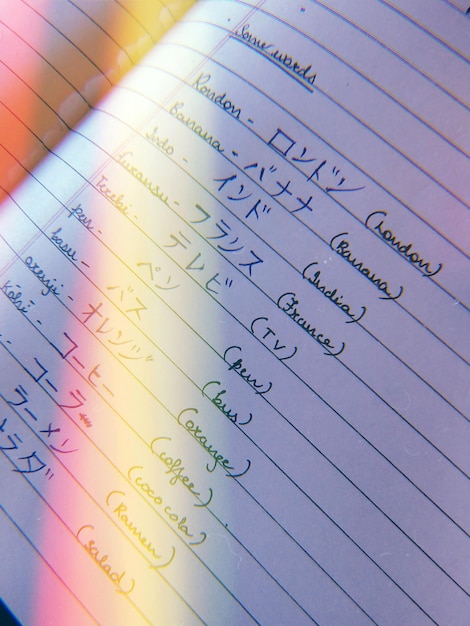 Some words
Rondon - ロンドン (London)
Banana - バナナ (Banana)
Indo - インド (India)
Furansu - フランス (France)
Terebi - テレビ (TV)
pen - ペン (pen)
basu - バス (bus)
orenji - オレンジ (orange)
Kōhī - コーヒー (coffee)
- コーラ (coco cola)
ラーメン (Ramen)
ラダ (salad)